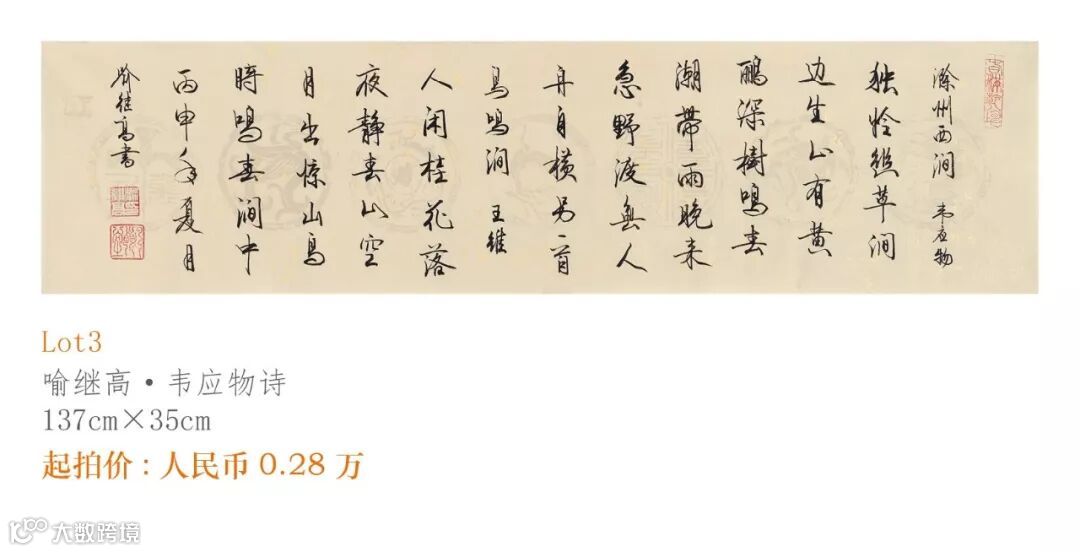 滁州西涧 韦应物
独怜幽草涧
边生上有黄
鹂深樹鳴春
潮帶雨晚来
急野渡無人
舟自横 另一首
鳥鳴涧 王維
人闲桂花落
夜静春山空
月出惊山鳥
時鳴春涧中
丙申年夏月
喻继高書
Lot3
喻继高·韦应物诗
137cm×35cm
起拍价：人民币 0.28 万
大数跨境